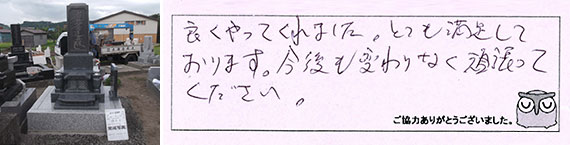 良くやってくれました。とても満足して
おります。今後も変わりなく頑張って
ください。
ご協力ありがとうございました。